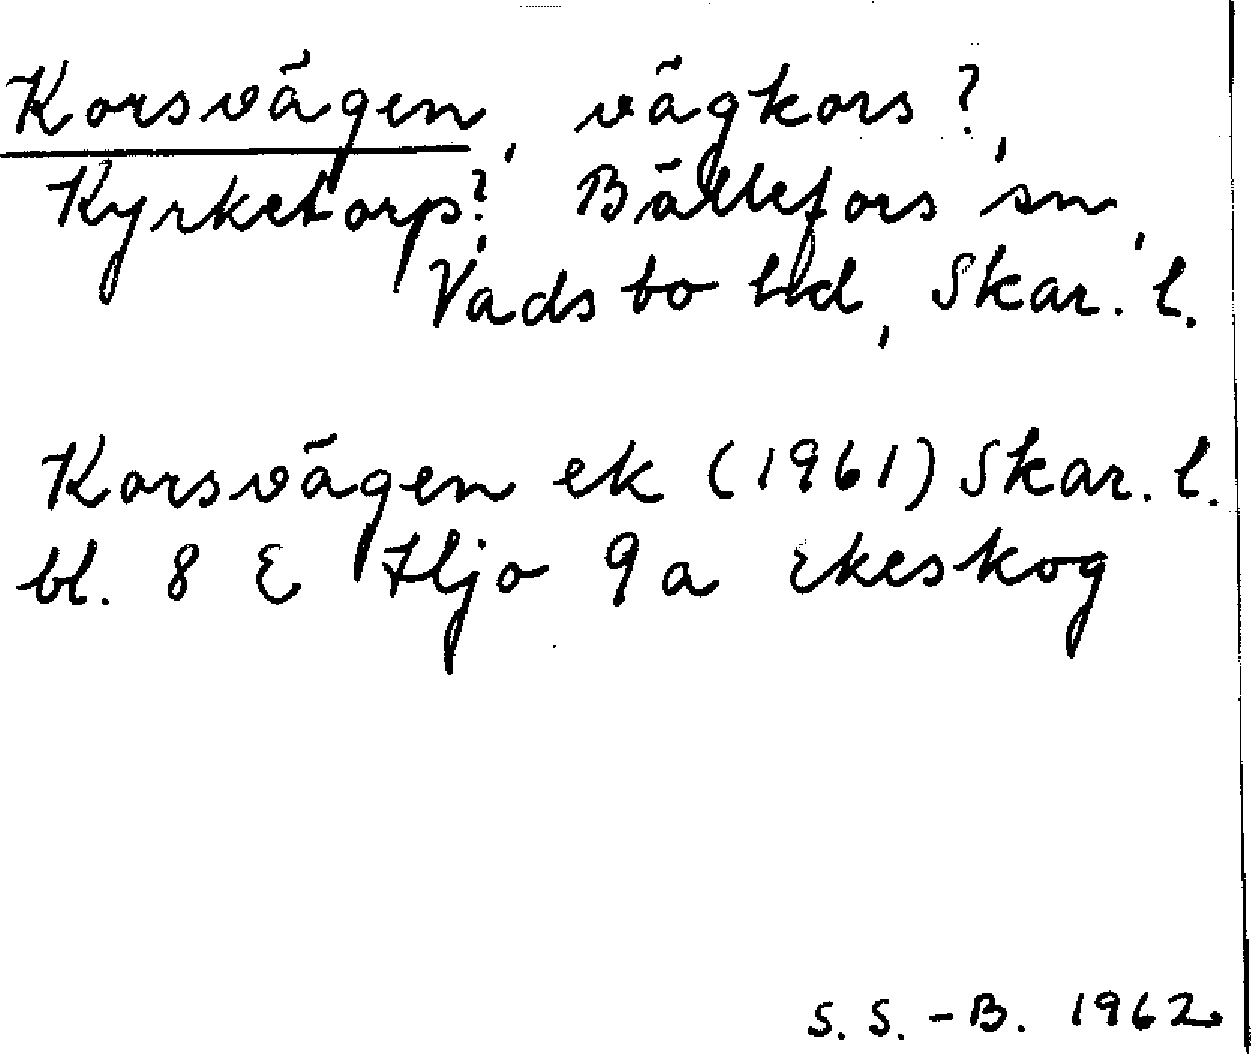 Korsvägen, vägkors?,
Kyrketorp?, Bällefors sn,
Vadsbo hd, Skar. l.
Korsvägen ek (1961) Skar. l.
bl. 8 E Hjo 9a Ekeskog
S. S.-B. 1962